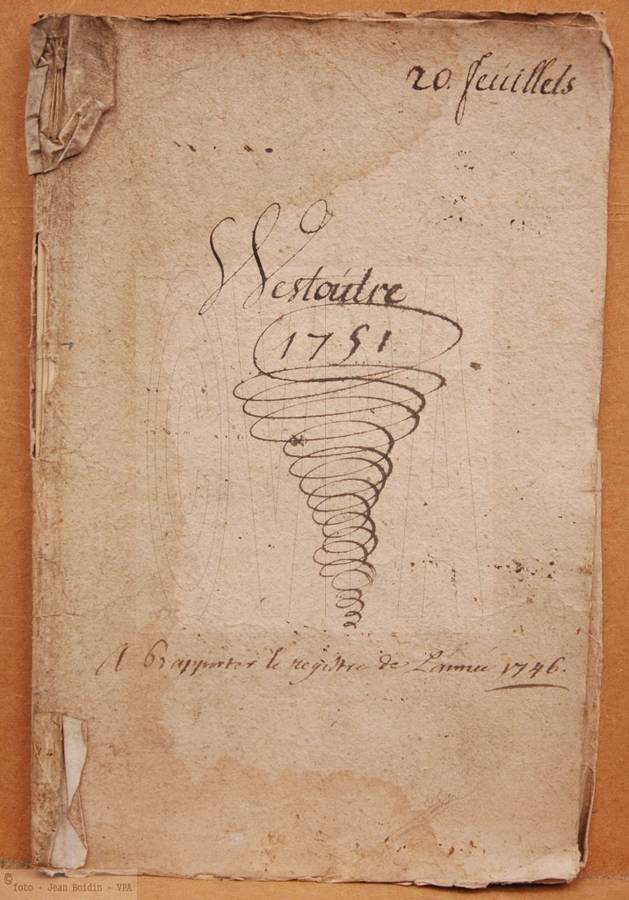 20. feuillets
Westoutre
1751
A Rapporter le registre de L'année 1746.
© foto - Jean Boidin - VPA